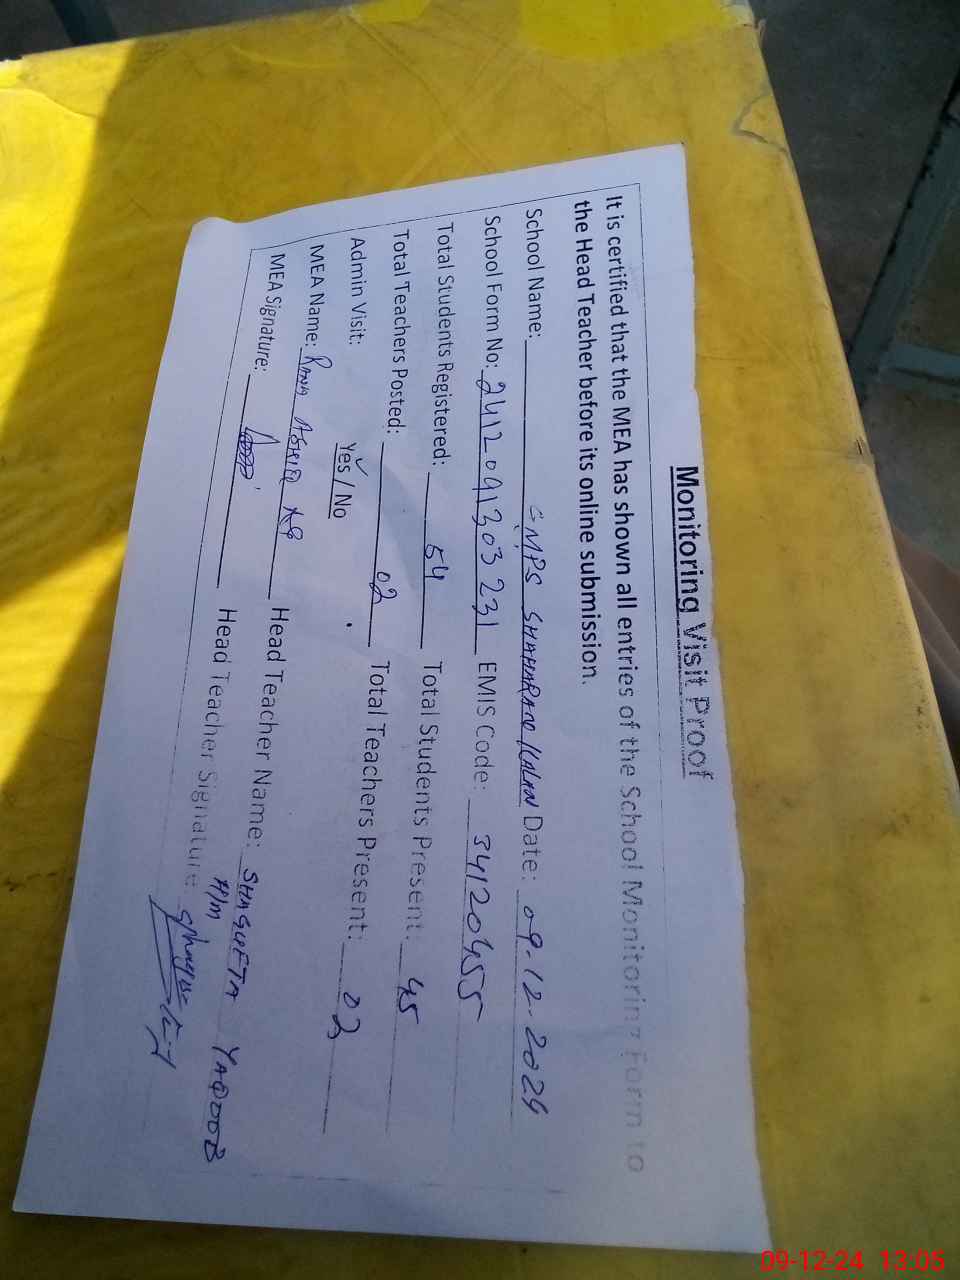 Monitoring Visit Proof
It is certified that the MEA has shown all entries of the School Monitoring Form to
the Head Teacher before its online submission.
School Name: GMPS SHAHMRANI KALAN Date: 09-12-2024
School Form No: 2412091303231 EMIS Code: 34120455
Total Students Registered: 54 Total Students Present: 45
Total Teachers Posted: 02 Total Teachers Present: 02
Admin Visit: Yes / No
MEA Name: RANA Head Teacher Name: SHAGUFTA YAQOOB
MEA Signature: Head Teacher Signature:
H/M
09-12-24 13:05